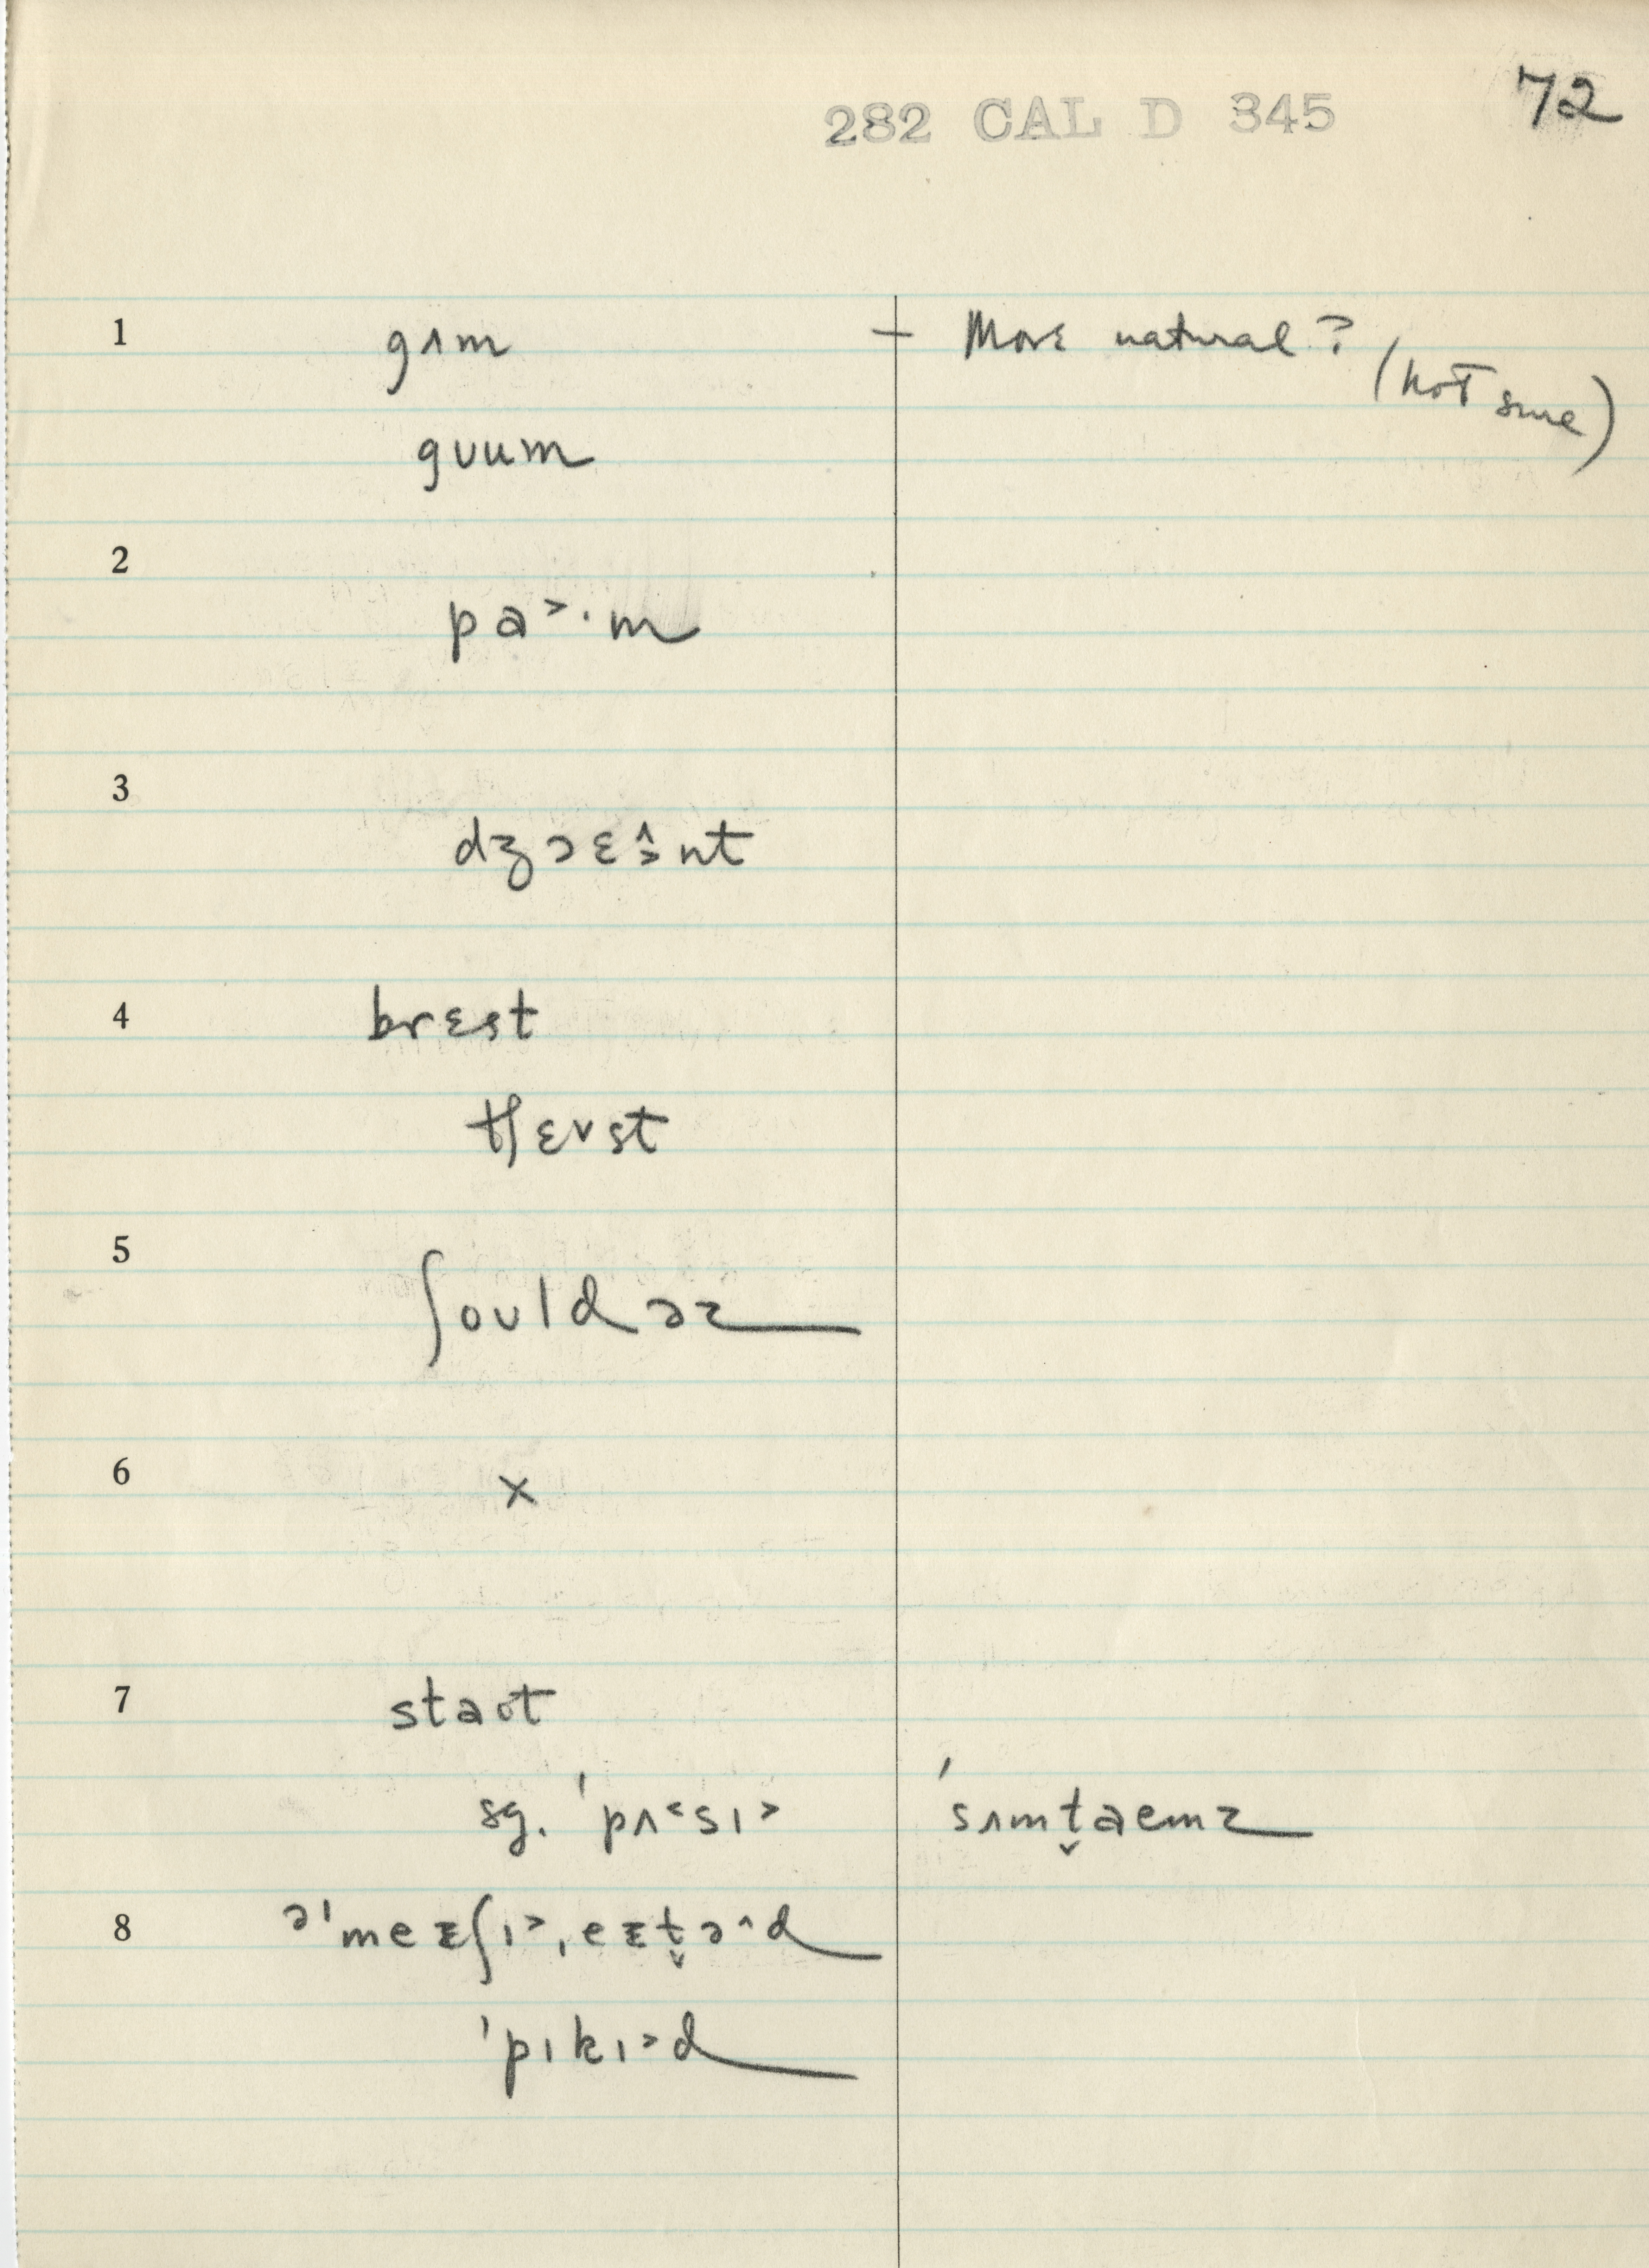 282 CAL D 345 72
1 gʌm – More natural?
(not sure)
gᴜum
2
pa˃·m
3
dʒɔɛə̭̂nt
4 brɛst
tʃɛvst
5
ʃoʊldəz
6 x
7 staot
sg. ˈpʌ˂sɪ˃ ˈsʌmt̬aemz
8 əˈmeɪʃɪ˃ˌeɪt̬ə^d
ˈpɪkɪ˃d